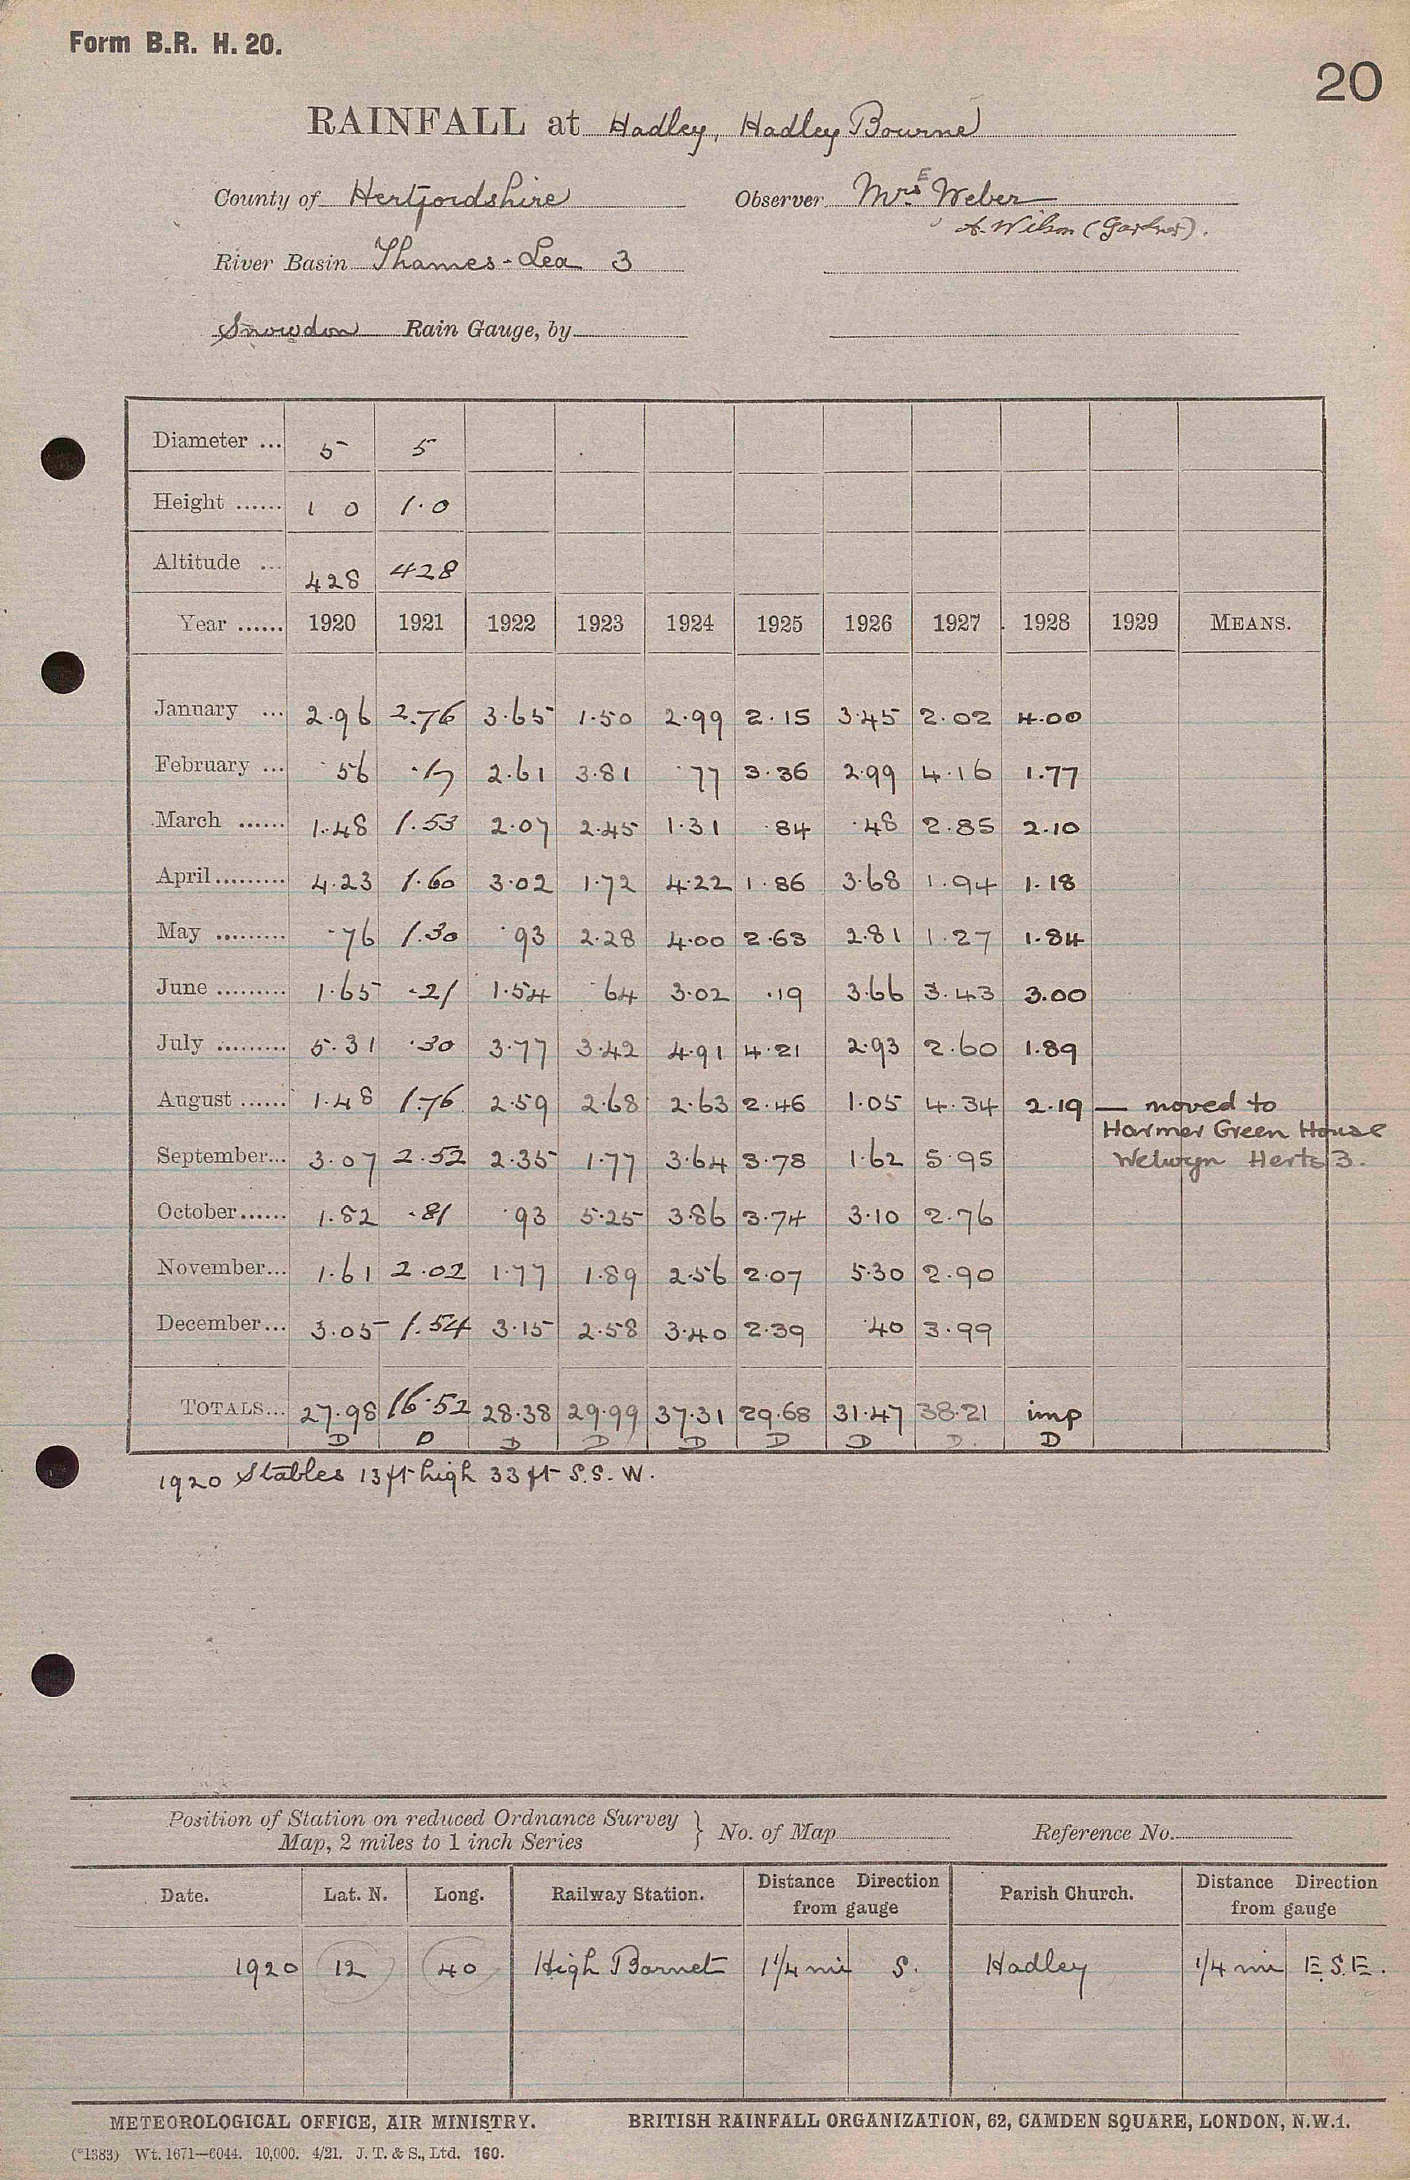 Form B.R. H. 20.
20
RAINFALL at Hadley, Hadley Bourne
County of Hertfordshire Observer Mrs E Weber
A. Wilson (Gardner).
River Basin Thames - Lea 3
Snowdon Rain Gauge, by
Diameter ... 5 5
Height ...... 1 0 1.0
Altitude ... 428 428
Year ...... 1920 1921 1922 1923 1924 1925 1926 1927 1928 1929 MEANS.
January ... 2.96 2.76 3.65 1.50 2.99 2.15 3.45 2.02 4.00
February ... .56 .17 2.61 3.81 .77 3.36 2.99 4.16 1.77
March ...... 1.48 1.53 2.07 2.45 1.31 .84 .48 2.85 2.10
April ......... 4.23 1.60 3.02 1.72 4.22 1.86 3.68 1.94 1.18
May ......... .76 1.30 .93 2.28 4.00 2.63 2.81 1.27 1.84
June ......... 1.65 .21 1.54 .64 3.02 .19 3.66 3.43 3.00
July ......... 5.31 .30 3.77 3.42 4.91 4.21 2.93 2.60 1.89
August ...... 1.48 1.76 2.59 2.68 2.63 2.46 1.05 4.34 2.19 — moved to
Harmer Green House
September... 3.07 2.52 2.35 1.77 3.64 3.78 1.62 5.95 Welwyn Herts 3.
October...... 1.82 .81 .93 5.25 3.86 3.74 3.10 2.76
November... 1.61 2.02 1.77 1.89 2.56 2.07 5.30 2.90
December... 3.05 1.54 3.15 2.58 3.40 2.39 .40 3.99
TOTALS... 27.98 16.52 28.38 29.99 37.31 29.68 31.47 38.21 imp
D D D D D D D D. D
1920 Stables 13 ft high 33 ft S.S.W.
Position of Station on reduced Ordnance Survey
Map, 2 miles to 1 inch Series } No. of Map Reference No.
Date. Lat. N. Long. Railway Station. Distance Direction from gauge Parish Church. Distance Direction from gauge
1920 12 40 High Barnet 1¼ mi S. Hadley ¼ mi E.S.E.
METEOROLOGICAL OFFICE, AIR MINISTRY. BRITISH RAINFALL ORGANIZATION, 62, CAMDEN SQUARE, LONDON, N.W.1.
(*1383) Wt. 1671—6044. 10,000. 4/21. J. T. & S., Ltd. 160.